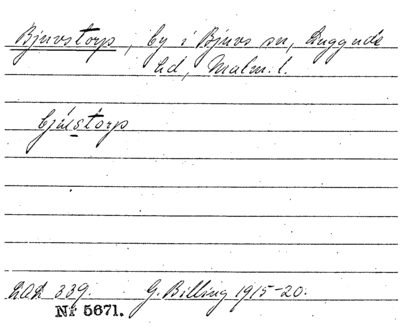 Bjuvstorp, by i Bjuvs sn, Luggude
hd, Malm. l.
bjústorp
LAL 339. G. Billing 1915-20.
Nr 5671.